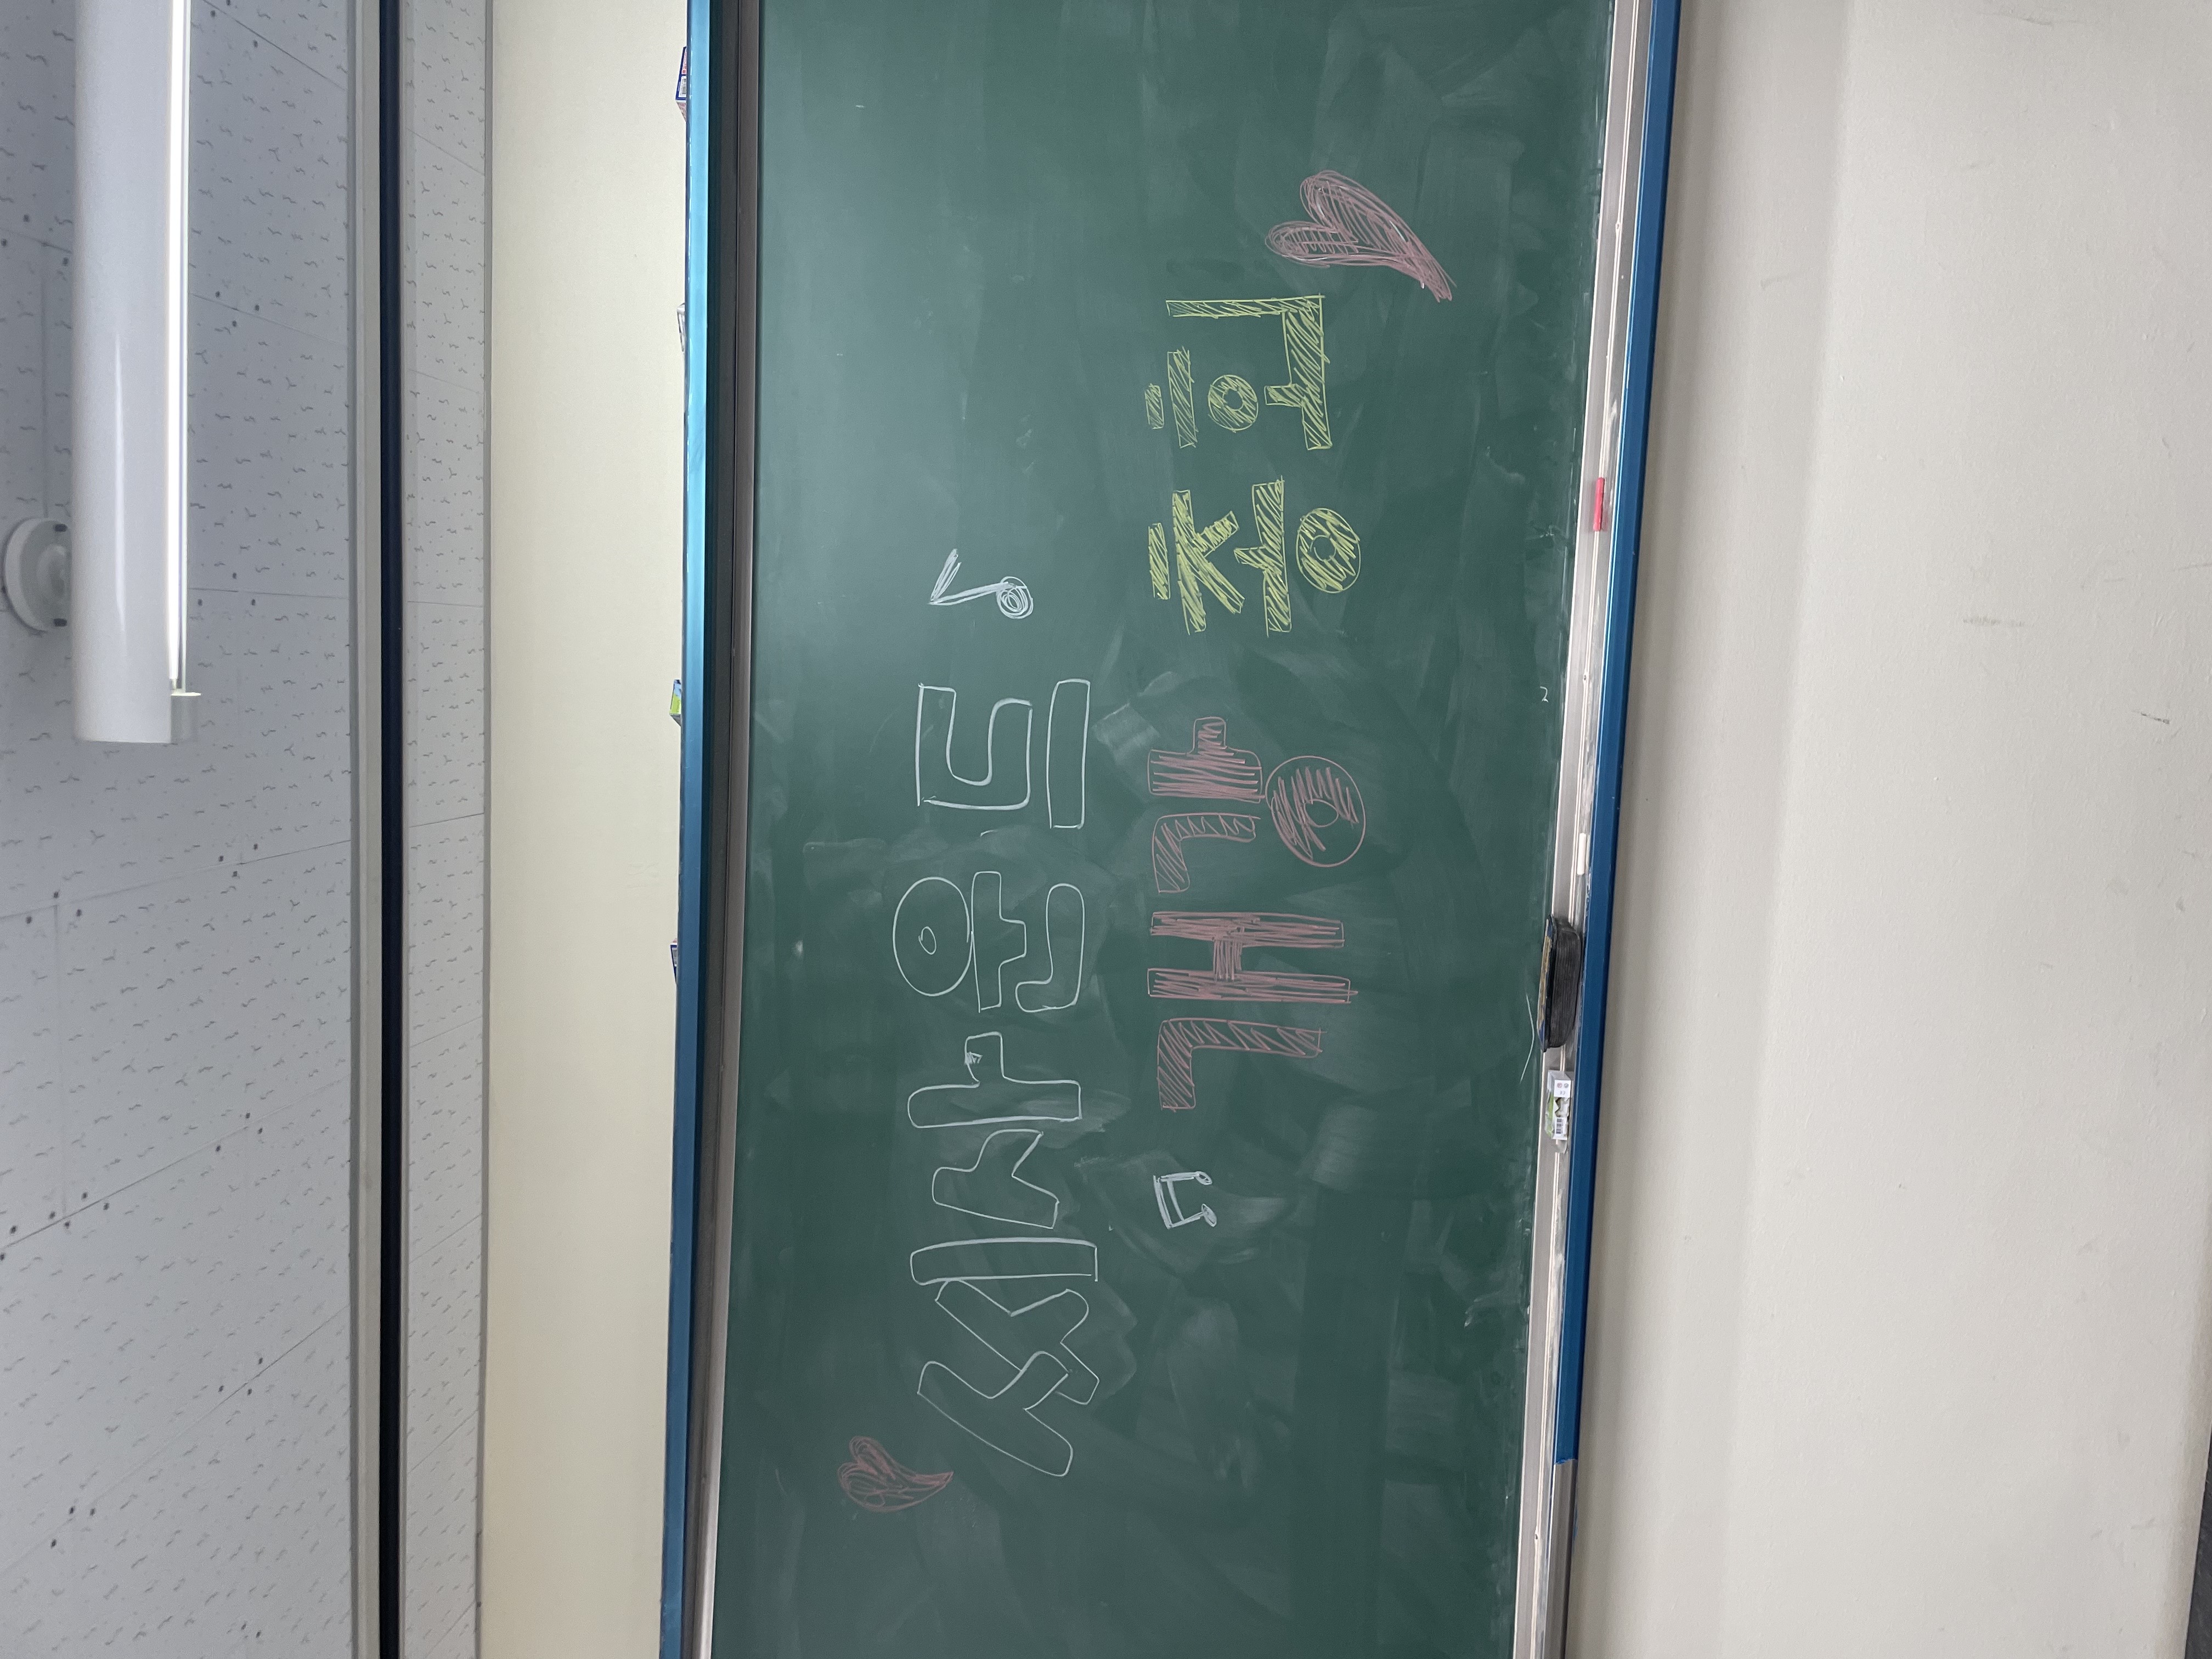 씨사운드
개강 총회